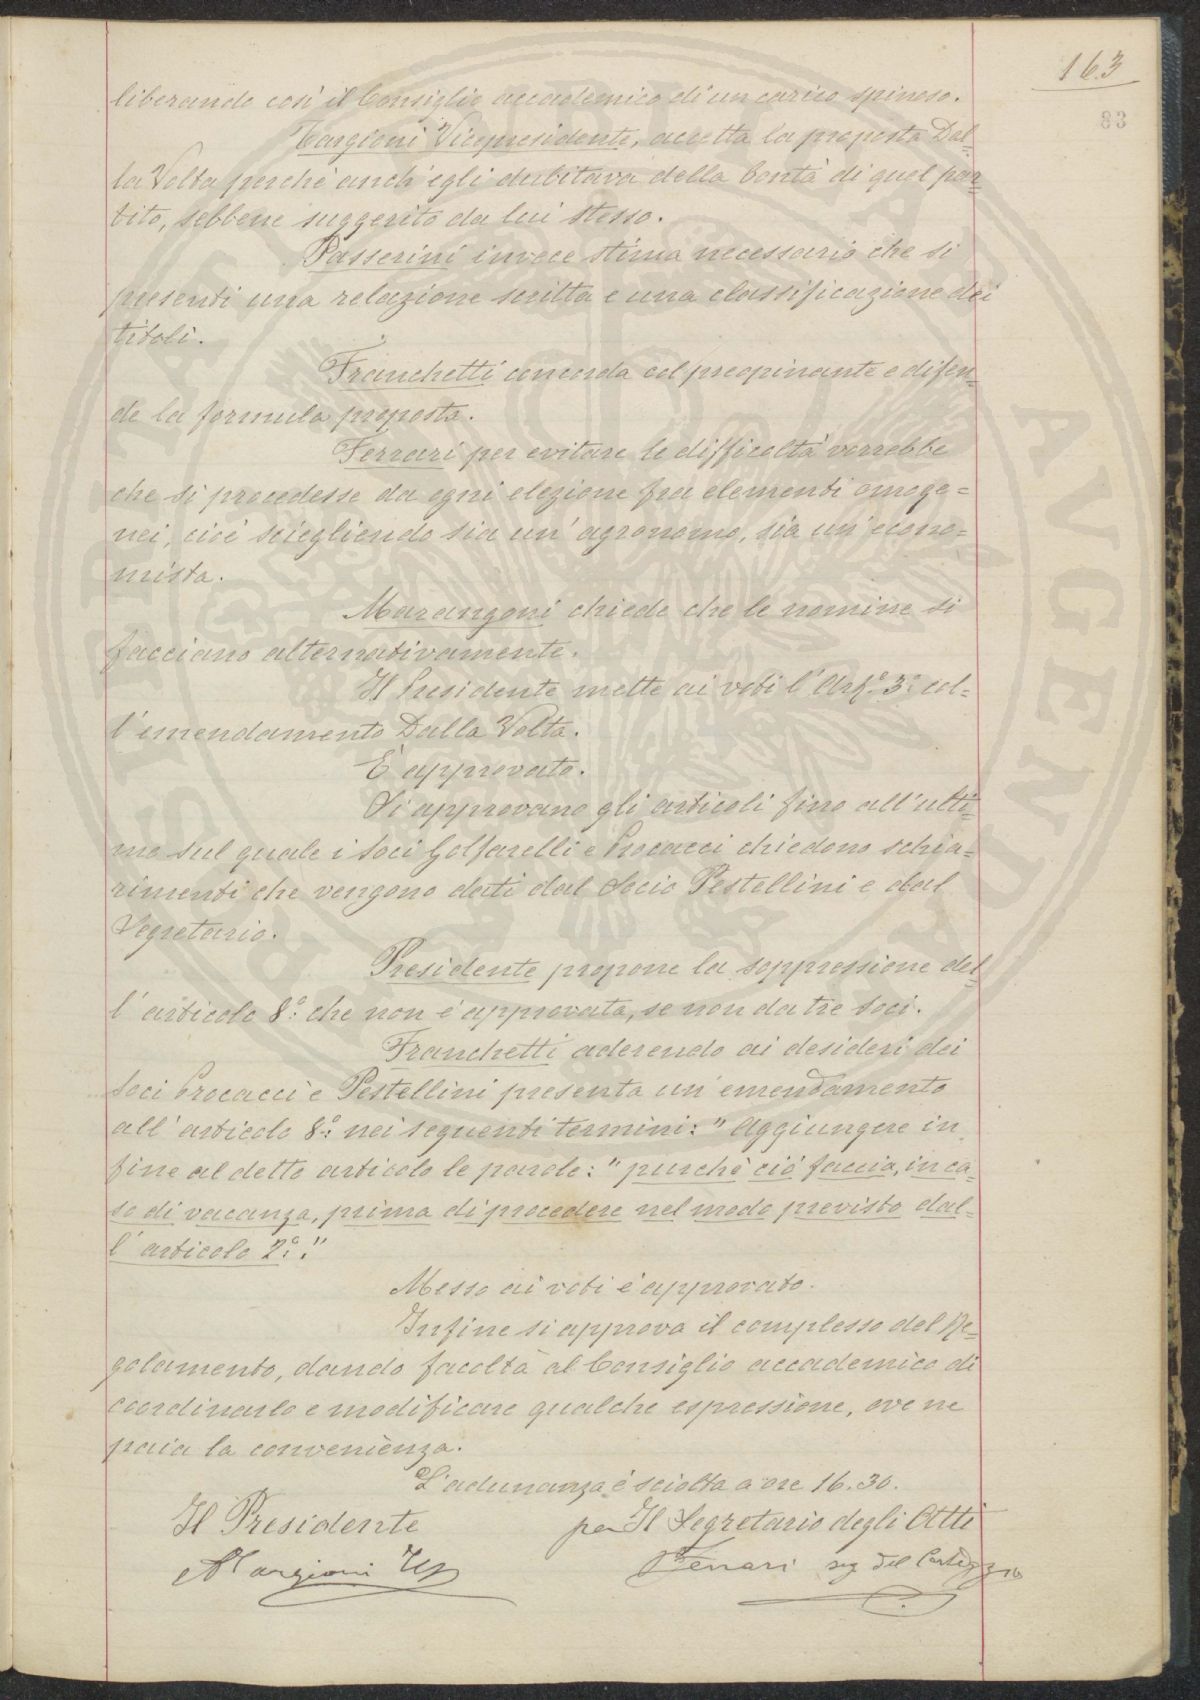 163
83
liberando così il Consiglio accademico di un carico spinoso.
Targioni Vicepresidente, accetta la proposta Dal=
la Volta perchè anch'egli dubitava della bontà di quel par=
tito, sebbene suggerito da lui stesso.
Passerini invece stima necessario che si
presenti una relazione scritta e una classificazione dei
titoli.
Franchetti concorda col preopinante e difen=
de la formula proposta.
Ferrari per evitare le difficoltà vorrebbe
che si procedesse da ogni elezione fra elementi omoge=
nei, cioè sciegliendo sia un' agronomo, sia un' econo=
mista.
Marangoni chiede che le nomine si
facciano alternativamente.
Il Presidente mette ai voti l'Art.° 3.° col=
l'emendamento Dalla Volta.
È approvato.
Si approvano gli articoli fino all'ulti=
mo sul quale i soci Golfarelli e Procacci chiedono schia=
rimenti che vengono dati dal Socio Pestellini e dal
Segretario.
Presidente propone la soppressione del=
l'articolo 8.° che non è approvata, se non da tre soci.
Franchetti aderendo ai desideri dei
soci Procacci e Pestellini presenta un'emendamento
all'articolo 8.° nei seguenti termini: "Aggiungere in
fine al detto articolo le parole: "purchè ciò faccia, in ca=
so di vacanza, prima di procedere nel modo previsto dal=
l'articolo 2.°."
Messo ai voti è approvato.
Infine si approva il complesso del Re=
golamento, dando facoltà al Consiglio accademico di
coordinarlo e modificare qualche espressione, ove ne
paia la convenienza.
L'adunanza è sciolta a ore 16.30.
Il Presidente
per Il Segretario degli Atti
Targioni
Ferrari seg del
PROSPERITAS AVGENDAE